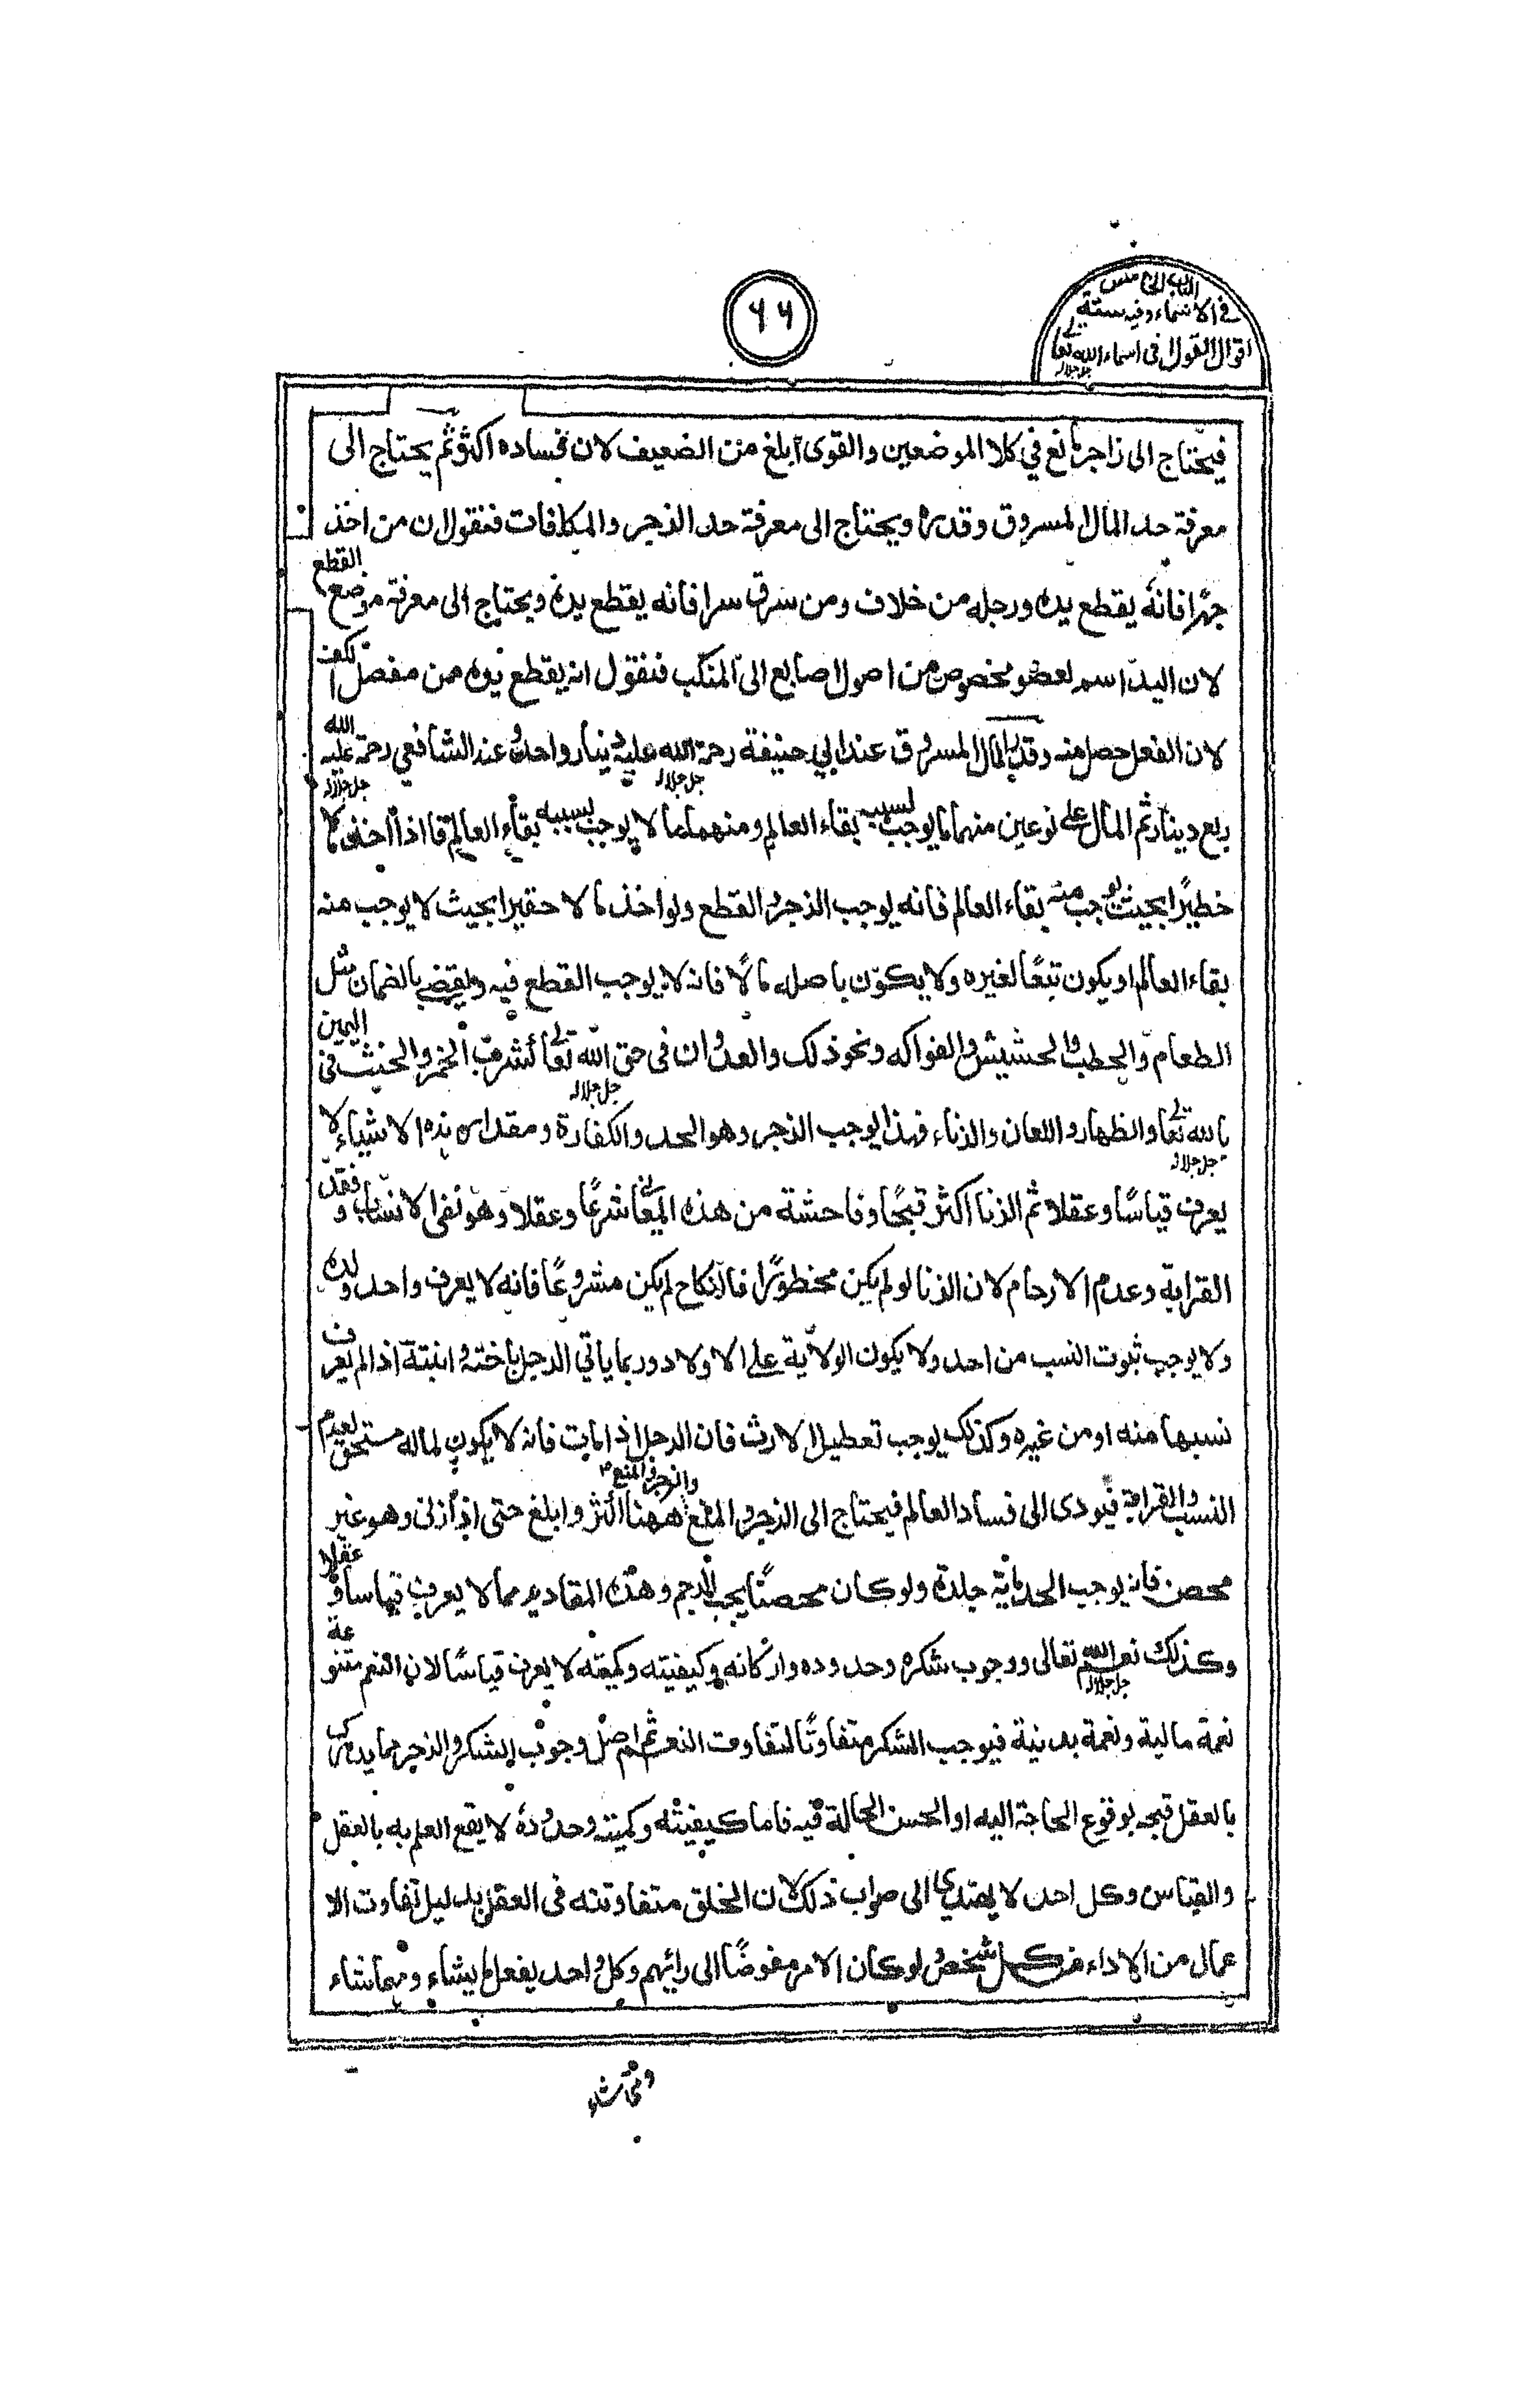 الباب الخامس
في الاسماء وفيه ستة
اقوال القول في اسماء الله تعالى
جل جلاله
٦٦
فيحتاج الى زاجر مانع في كلا الموضعين والقوى أبلغ من الضعيف لان فساده اكثر ثم يحتاج الى
معرفة حد المال المسروق وقدره ويحتاج الى معرفة حد الزجر والمكافات فنقول ان من اخذ
جهرا فانه يقطع يده ورجله من خلاف ومن سرق سرا فانه يقطع يده ويحتاج الى معرفة موضع القطع
لان اليد اسم لعضو مخصوص من اصول اصابع الى المنكب فنقول انه يقطع يده من مفصل الكف
لان الفعل حصل منه وقدر المال المسروق عند ابي حنيفة رحمة الله جل جلاله عليه دينار واحد وعند الشافعي رحمة الله جل جلاله عليه
ربع دينار ثم المال على نوعين منهما ما يوجب لسببه بقاء العالم ومنهما ما لا يوجب بسببه بقاء العالم فاذا اخذ مالا
خطيرا بحيث يوجب منه بقاء العالم فانه يوجب الزجر والقطع ولو اخذ مالا حقيرا بحيث لا يوجب منه
بقاء العالم او يكون تبعًا لغيره ولا يكون باصله مالًا فانه لا يوجب القطع فيه ويقضي بالضمان مثل
الطعام والحطب والحشيش والفواكه ونحو ذلك والعدوان في حق الله تعالى جل جلاله كشرب الخمر والحنث في اليمين
بالله تعالى جل جلاله والظهار واللعان والزناء فهذا يوجب الزجر وهو الحد والكفارة ومقدار هذه الاشياء لا
يعرف قياسًا وعقلا ثم الزنا اكثر قبحًا وفاحشة من هذه المعانى شرعًا وعقلا وهو نفى الانساب وفقد
القرابة وعدم الارحام لان الزنا لو لم يكن محظورًا فالنكاح لم يكن مشروعًا فانه لا يعرف واحد ولده
ولا يوجب ثبوت النسب من احد ولا يكون الولاية على الاولاد وربما ياتي الرجل باخته وابنته اذا لم يعرف
نسبها منه او من غيره وكذلك يوجب تعطيل الارث فان الرجل اذا مات فانه لا يكون لماله مستحق لعدم
النسب والقرابة فيودى الى فساد العالم فيحتاج الى الزجر والمنع والزجر والمنع ههنا اكثر وابلغ حتى اذا زنى وهو غير
محصن فانه يوجب الحد مائة جلدة ولو كان محصنًا يجب الرجم وهذه المقادير مما لا يعرف قياسا وعقلا
وكذلك نعم الله جل جلاله تعالى ووجوب شكره وحدوده واركانه وكيفيته وكميته لا يعرف قياسًا لان النعم متنوعة
نعمة مالية ونعمة بدنية فيوجب الشكر متفاوتًا لتفاوت النعم ثم اصل وجوب الشكر والزجر مما يدرك
بالعقل قبحه بوقوع الحاجة اليه او الحسن الحالة فيه فاما كيفيته وكميته وحدوده لا يقع العلم به بالعقل
والقياس وكل احد لا يهتدي الى صواب ذلك لان الخلق متفاوتته في العقل بدليل تفاوت الا
عمال من الاداء من كل شخص لو كان الامر مفوضًا الى رائيهم وكل واحد يفعل ما يشاء ومهما شاء
ومتى شاء